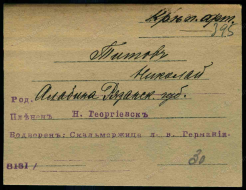 Крѣп. арт.
395
Титовъ
Николай
Род. Алабина Рязанск. губ.
Плѣненъ Н. Георгіевск
Водворенъ: Скальмержица л. в. Германія
8181
30